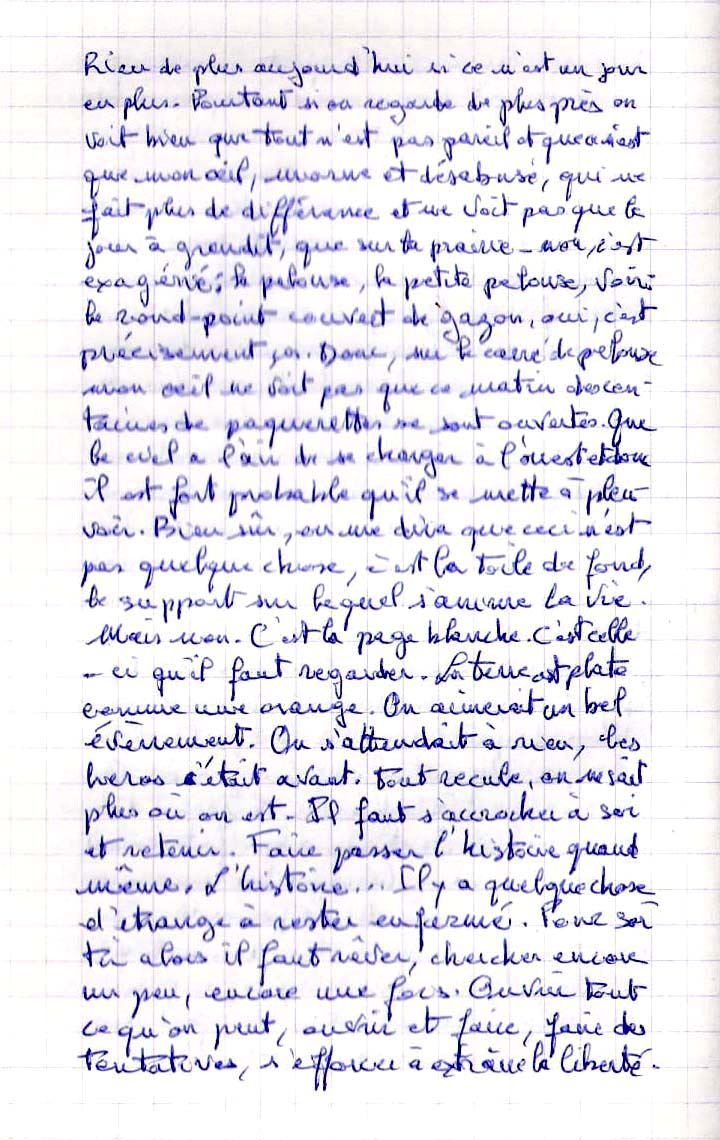 Rien de plus aujourd'hui si ce n'est un jour
en plus. Pourtant si on regarde de plus près on
voit bien que tout n'est pas pareil et que ce n'est
que mon œil, morne et désabusé, qui ne
fait plus de différence et ne voit pas que le
jour à grandit, que sur la prairie - non, c'est
exagéré; la pelouse, la petite pelouse, voire
le rond-point couvert de gazon, oui, c'est
précisement ça. Donc, sur le carré de pelouse
mon oeil ne voit pas que ce matin des cen-
taines de paquerettes se sont ouvertes. Que
le ciel a l'air de se charger à l'ouest et donc
il est fort probable qu'il se mette à pleu-
voir. Bien sûr, on me dira que ceci n'est
pas quelque chose, c'est la toile de fond,
le support sur lequel s'anime la vie.
Mais non. C'est la page blanche. C'est celle
- ci qu'il faut regarder. La terre est plate
comme une orange. On aimerait un bel
évènement. On s'attendait à rien, les
heros c'était avant. Tout recule, on ne sait
plus où on est. Il faut s'accrocher à soi
et retenir. Faire passer l'histoire quand
même. L'histoire... Il y a quelque chose
d'étrange à rester enfermé. Pour sor
tir alors il faut rêver, chercher encore
un peu, encore une fois. Ouvrir tout
ce qu'on peut, ouvrir et faire, faire des
tentatives, s'efforcer à extraire la liberté.